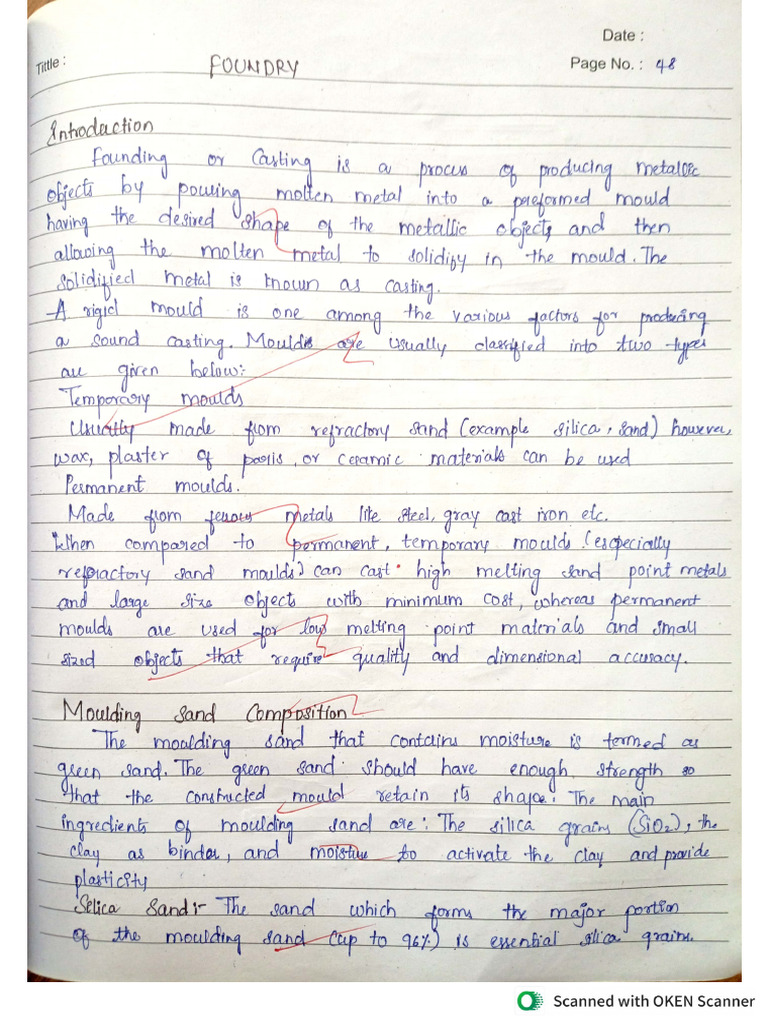 Date :
Tittle :
FOUNDRY
Page No. : 48
Introduction
Founding or Casting is a process of producing metallic
objects by pouring molten metal into a preformed mould
having the desired shape of the metallic objects, and then
allowing the molten metal to solidify in the mould. The
solidified metal is known as casting.
A rigid mould is one among the various factors for producing
a sound casting. Moulds are usually classified into two types
are given below:
Temporary moulds
Usually made from refractory sand (example silica, sand) however,
wax, plaster of paris, or ceramic materials can be used
Permanent moulds.
Made from ferrous metals like steel, gray cast iron etc.
When compared to permanent, temporary moulds (especially
refractory sand moulds) can cast high melting sand point metals
and large size objects with minimum cost, whereas permanent
moulds are used for low melting point materials and small
sized objects that require quality and dimensional accuracy.
Moulding sand Composition
The moulding sand that contains moisture is termed as
green sand. The green sand should have enough strength so
that the constructed mould retain its shape. The main
ingredients of moulding sand are: The silica grains (SiO2), the
clay as binder, and moisture to activate the clay and provide
plasticity
Selica Sand:- The sand which forms the major portion
of the moulding sand (up to 96%) is essential silica grains.
Scanned with OKEN Scanner